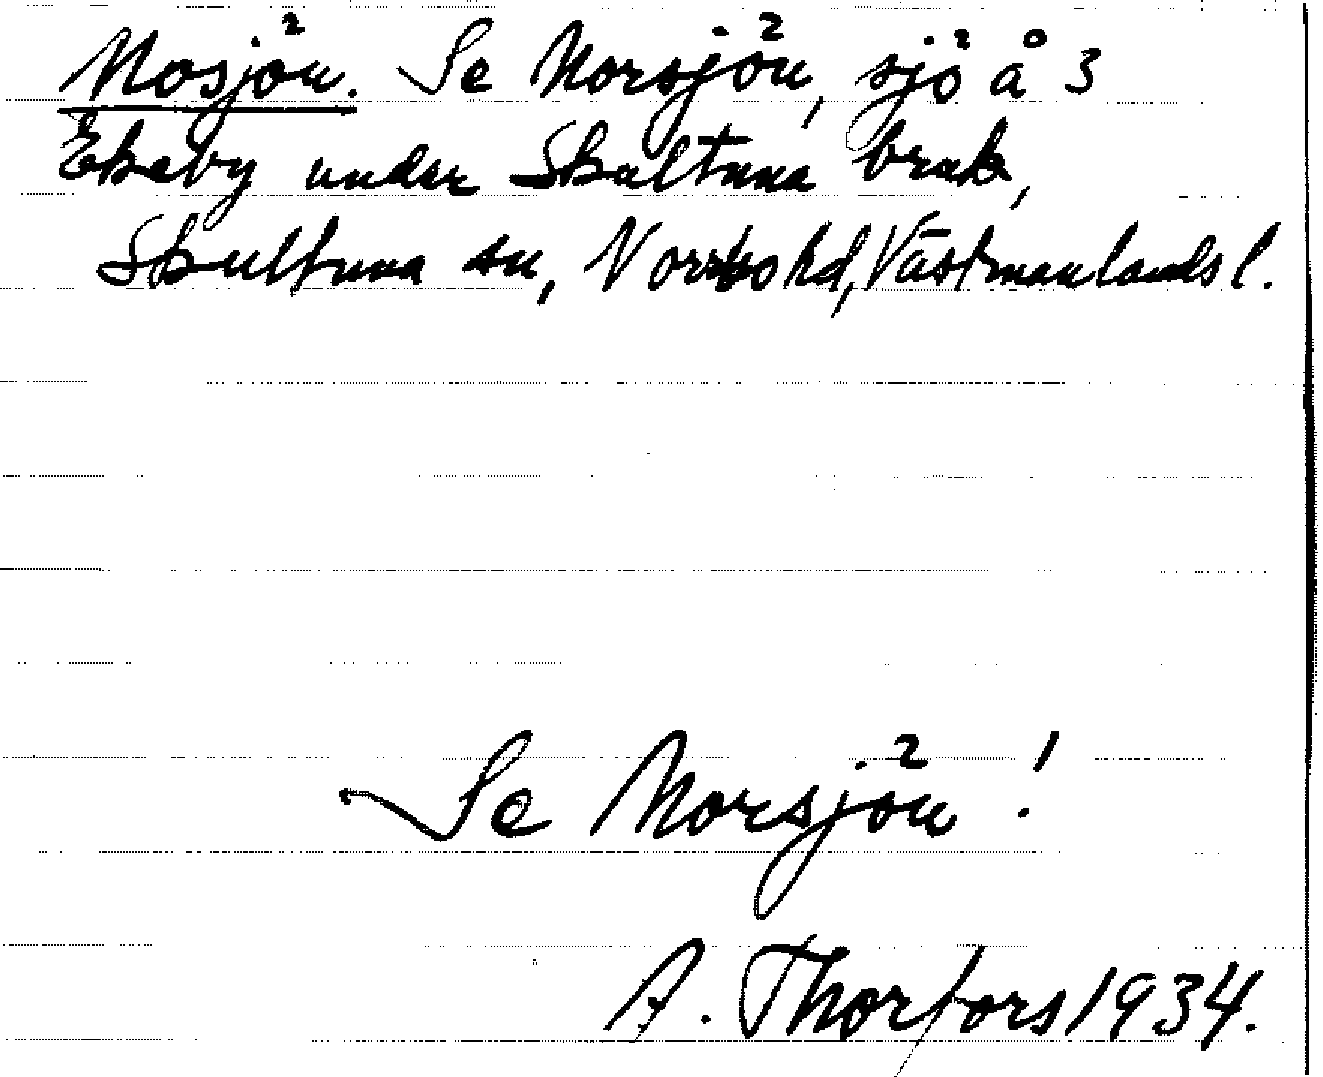 Mosjön. Se Morsjön, sjö å 3
Ekeby under Skultuna bruk,
Skultuna sn, Norrbo hd, Västmanlands l.
Se Morsjön!
A. Thorfors 1934.